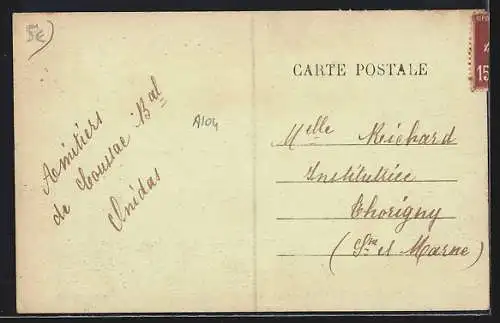 5€
Amitiés
de Coussac Bal
CARTE POSTALE
15
A104
Mlle Richard
Institutrice
Thorigny
(Sne et Marne)